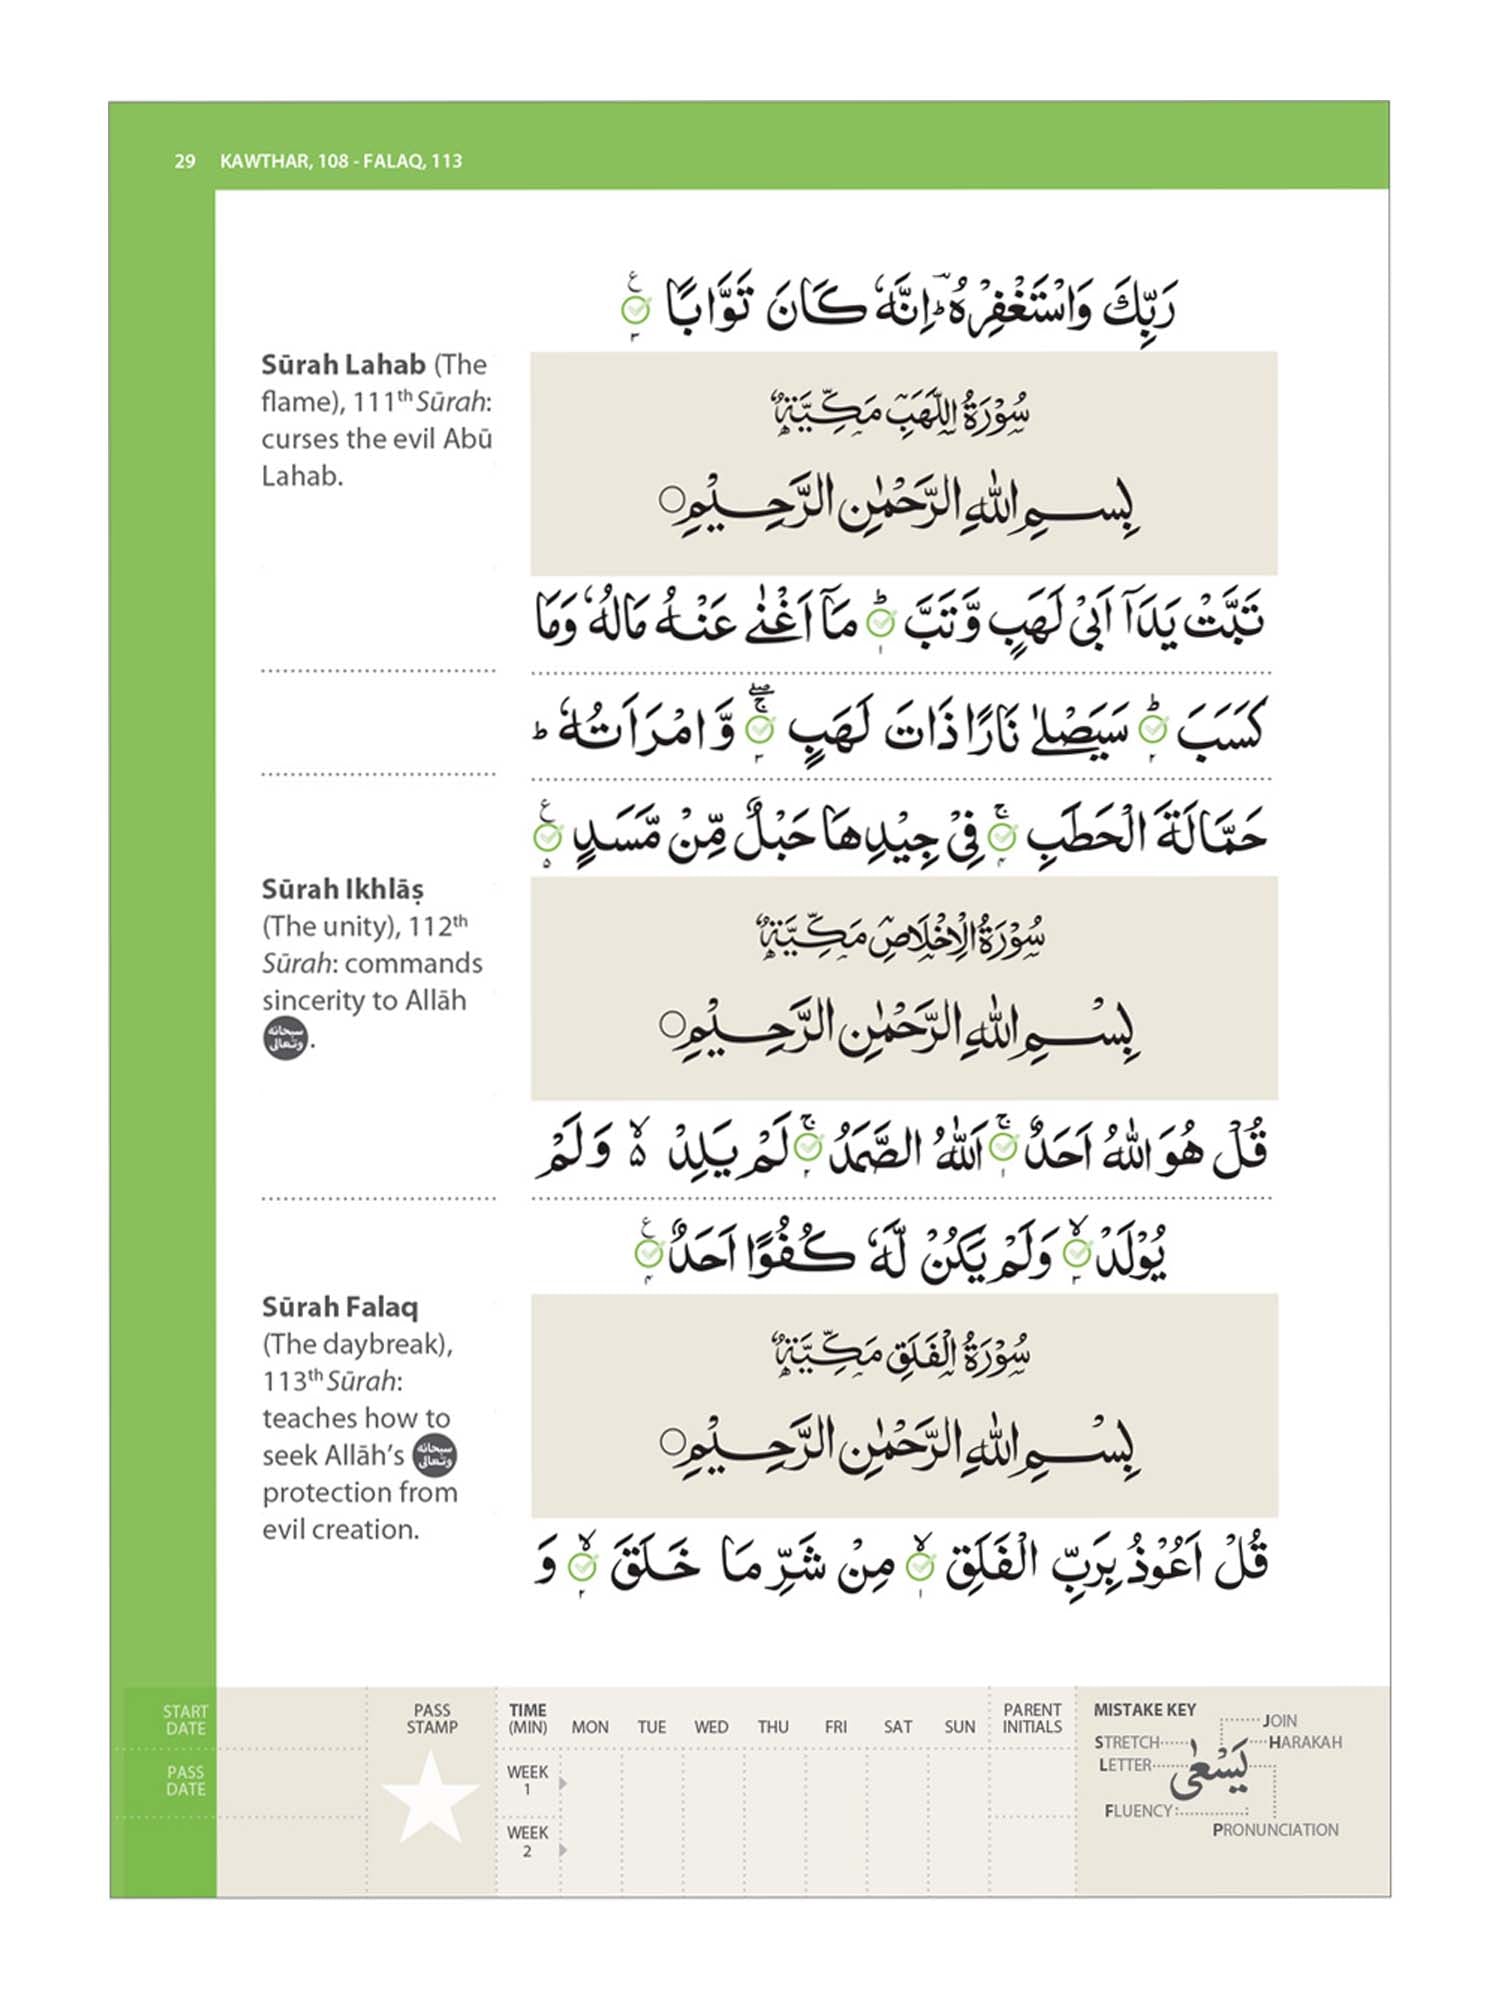 29 KAWTHAR, 108 - FALAQ, 113
رَبِّكَ وَاسْتَغْفِرْهُ ؕ اِنَّهٗ كَانَ تَوَّابًا ۳ ع
Sūrah Lahab (The
flame), 111th Sūrah:
curses the evil Abū
Lahab.
سُوْرَةُ اللَّهَبِ مَكِّيَّةٌ
بِسْمِ اللّٰهِ الرَّحْمٰنِ الرَّحِيْمِ
تَبَّتْ يَدَاۤ اَبِيْ لَهَبٍ وَّتَبَّ ؕ ۱ مَاۤ اَغْنٰى عَنْهُ مَالُهٗ وَمَا
كَسَبَ ؕ ۲ سَيَصْلٰى نَارًا ذَاتَ لَهَبٍ ۚۖ ۳ وَّامْرَاَتُهٗ ؕ
حَمَّالَةَ الْحَطَبِ ۚ ۴ فِيْ جِيْدِهَا حَبْلٌ مِّنْ مَّسَدٍ ۵ ع
Sūrah Ikhlāṣ
(The unity), 112th
Sūrah: commands
sincerity to Allāh
سبحانه وتعالى.
سُوْرَةُ الْاِخْلَاصِ مَكِّيَّةٌ
بِسْمِ اللّٰهِ الرَّحْمٰنِ الرَّحِيْمِ
قُلْ هُوَ اللّٰهُ اَحَدٌ ۚ ۱ اَللّٰهُ الصَّمَدُ ۚ ۲ لَمْ يَلِدْ ۙ۵ وَلَمْ
يُوْلَدْ ۙ ۳ وَلَمْ يَكُنْ لَّهٗ كُفُوًا اَحَدٌ ۴ ع
Sūrah Falaq
(The daybreak),
113th Sūrah:
teaches how to
seek Allāh’s سبحانه وتعالى
protection from
evil creation.
سُوْرَةُ الْفَلَقِ مَكِّيَّةٌ
بِسْمِ اللّٰهِ الرَّحْمٰنِ الرَّحِيْمِ
قُلْ اَعُوْذُ بِرَبِّ الْفَلَقِ ۙ ۱ مِنْ شَرِّ مَا خَلَقَ ۙ ۲ وَ
START DATE
PASS DATE
PASS STAMP
TIME (MIN) MON TUE WED THU FRI SAT SUN PARENT INITIALS
WEEK 1
WEEK 2
MISTAKE KEY
JOIN
STRETCH HARAKAH
LETTER يَسْعٰى
FLUENCY
PRONUNCIATION